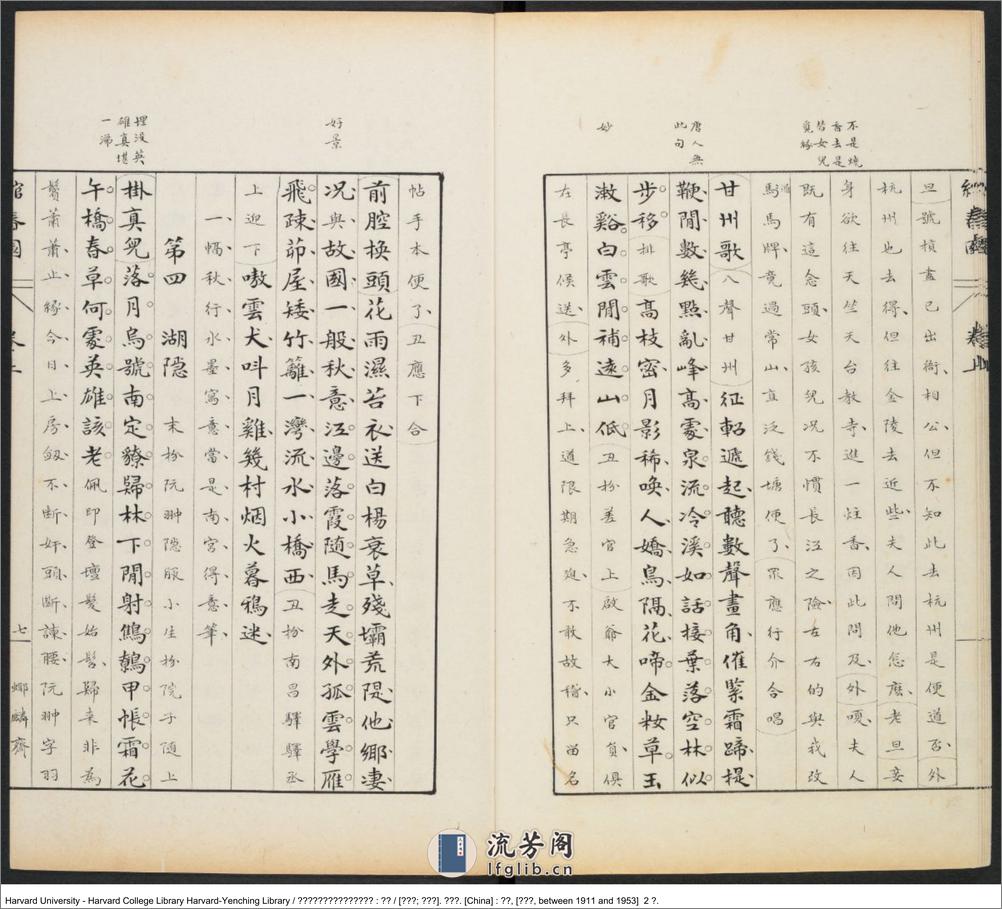 不是燒
香去是
替女兒
覓緣
旦號楨盡已出衙相公但不知此去杭州是便道否外
杭州也去得但往金陵去近些夫人問他怎麽老旦妾
身欲往天竺天台教寺進一炷香因此問及外嗄夫人
既有這念頭女孩兒况不慣長江之險左右的與我改
馬馬牌竟過常山直泛錢塘便了眾應行介合唱
甘州歌八聲甘州征軺遞起聽數聲畫角催紧霜蹄提
唐人無
此句
鞭閒數幾點亂峰髙處泉流冷溪如話接葉落空林似
步移排歌髙枝密月影稀喚人嬌鳥隔花啼金籹草玉
妙
漱谿白雲閒補遠山低丑扮差官上啟爺大小官員俱
在長亭候送外多拜上道限期急迫不敢故稽只留名
帖手本便了丑應下合
前腔換頭花雨濕苔衣送白楊衰草殘壩荒隄他鄉淒
好景
况與故國一般秋意江邊落霞随馬走天外孤雲學雁
飛疎茆屋矮竹籬一灣流水小橋西丑扮南昌驛驛丞
上迎下嗷雲犬呌月雞幾村烟火暮鴉迷
一幅秋行水墨寫意當是南宮得意筆
第四 湖隠 末扮阮翀隠服小生扮院子随上
埋没英
雄真堪
一涕
掛真兒落月烏號南定獠歸林下閒射鷓鴣甲帳霜花
午橋春草何處英雄該老佩印登壇髮始髫歸来非為
鬢蕭蕭止緣今日上房劔不斷奸頭斷諫腰阮翀字羽
舘春園 卷上 七 螂鱗齋